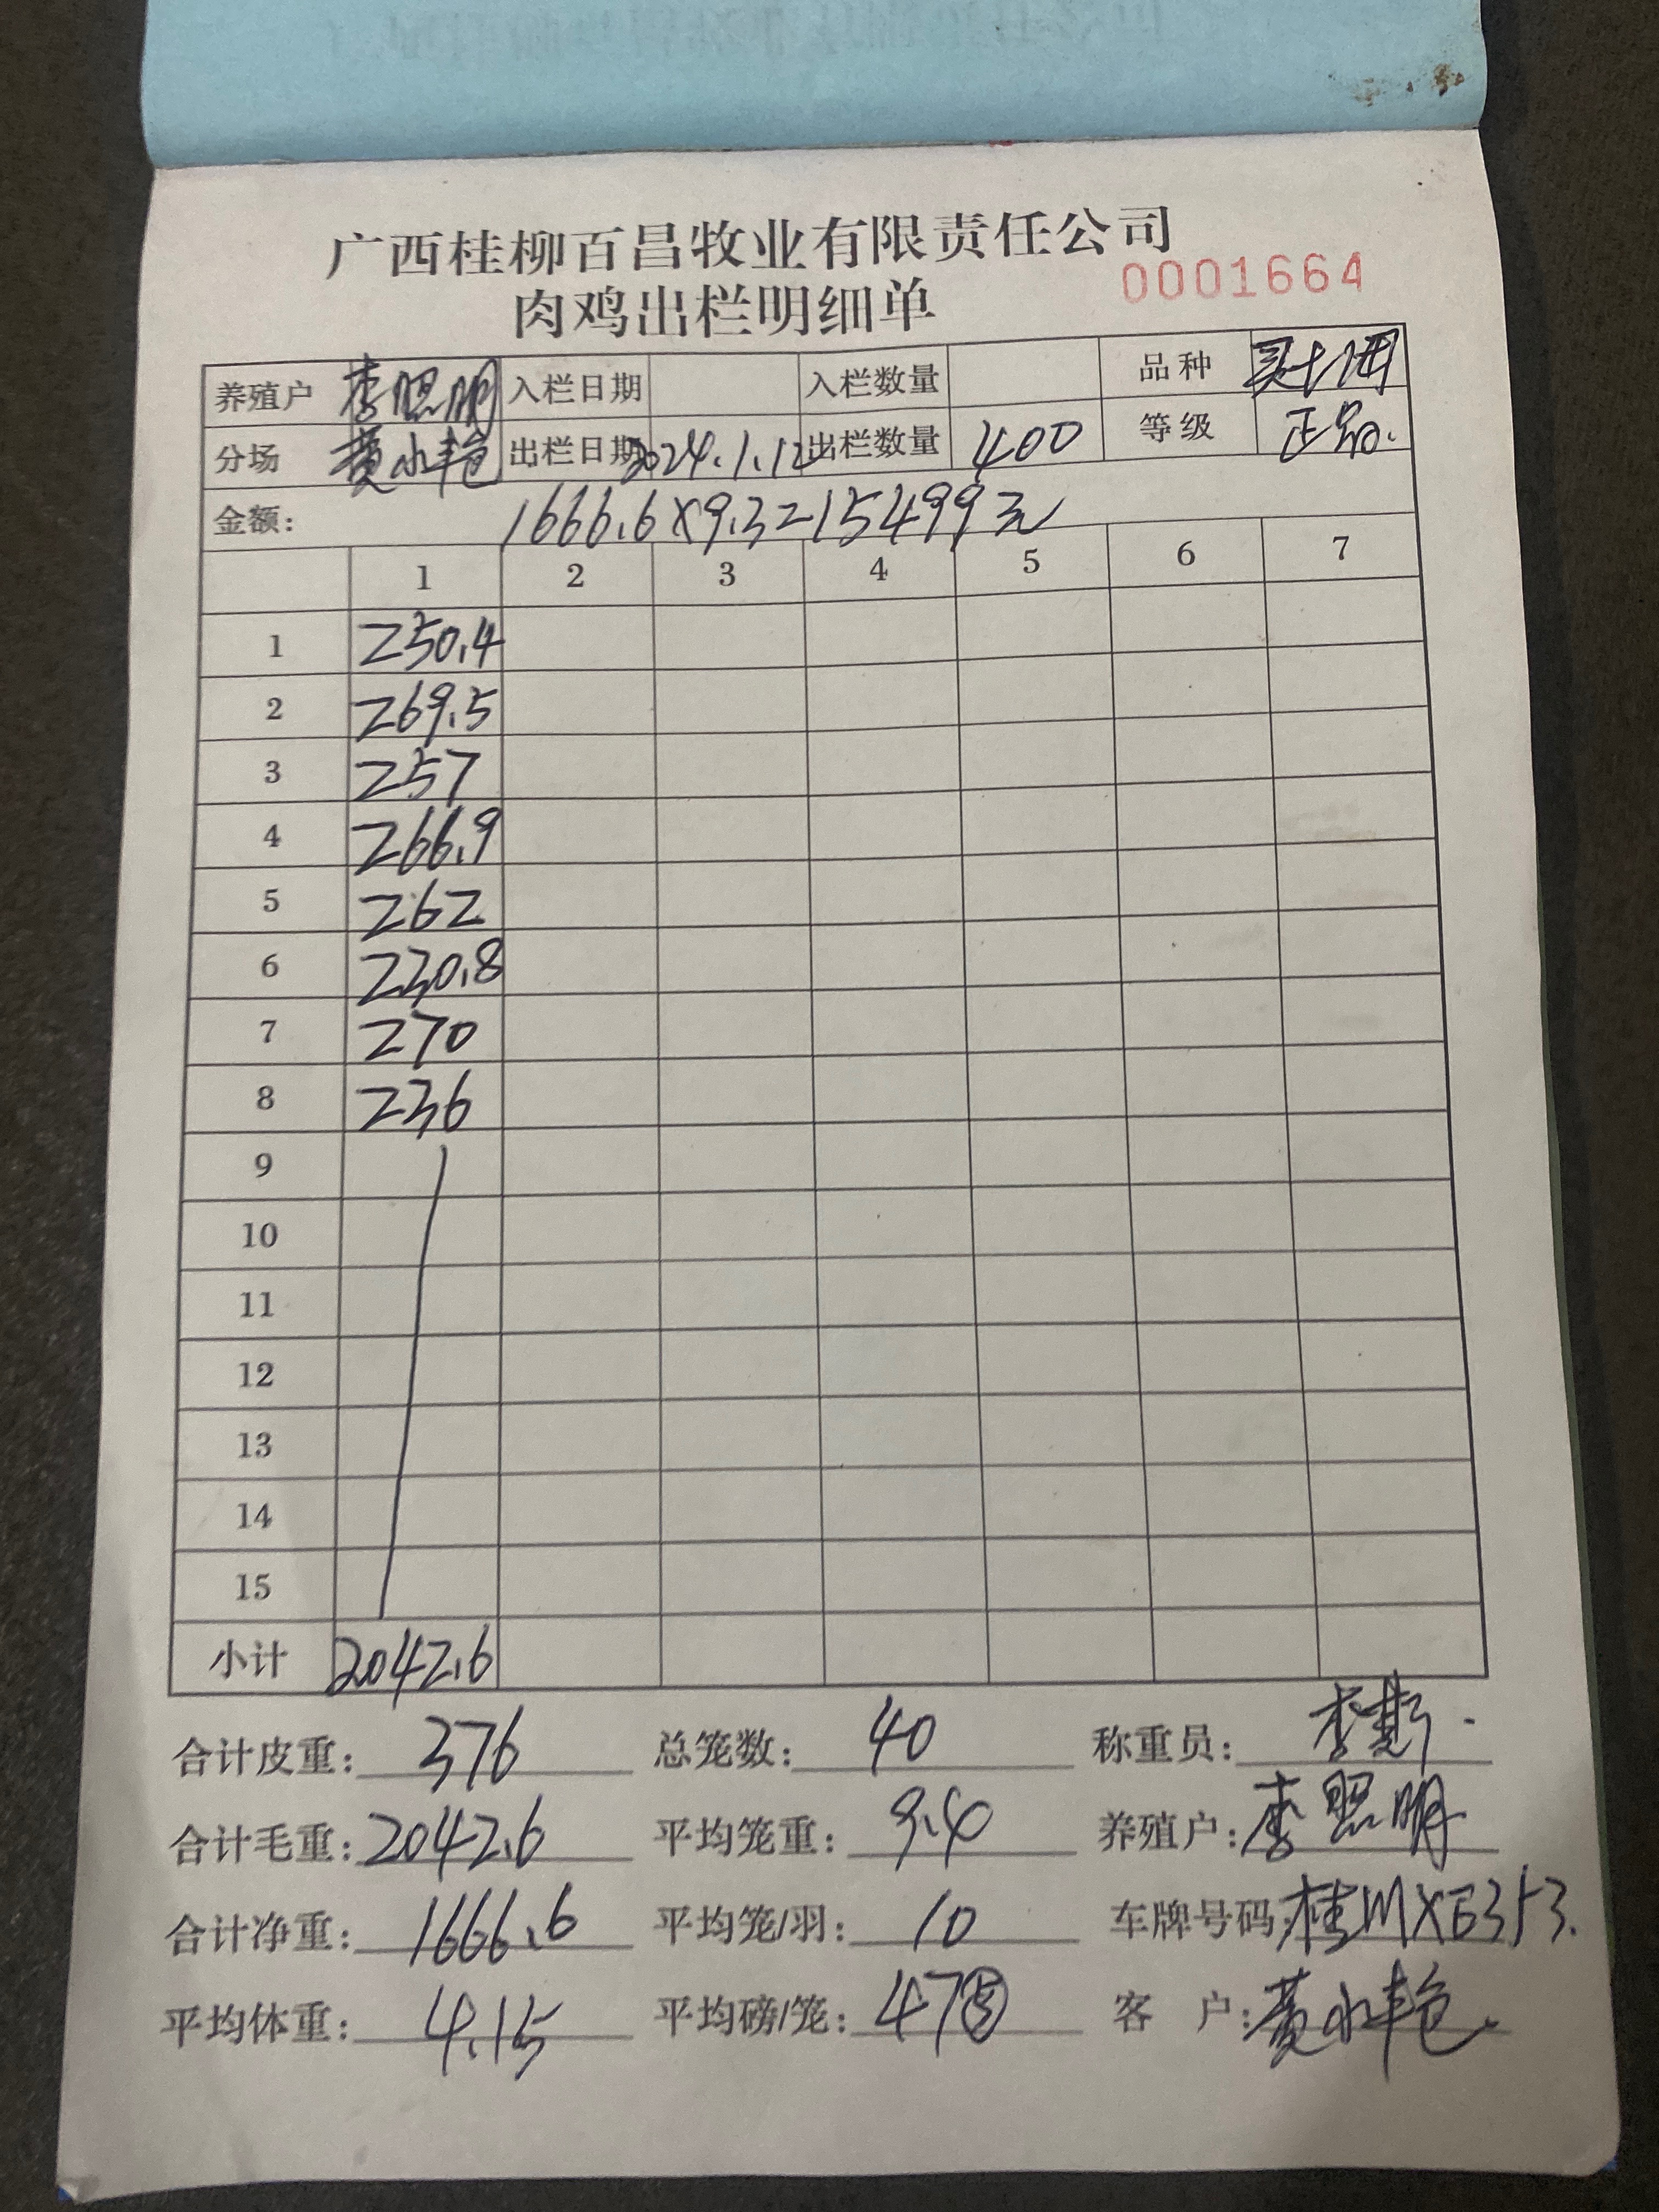 广西桂柳百昌牧业有限责任公司
肉鸡出栏明细单 0001664
养殖户 李照明 入栏日期 入栏数量 品种
分场 黄水艳 出栏日期 2024.1.12 出栏数量 400 等级 正品.
金额: 1666.6×9.3=15499元
1 2 3 4 5 6 7
1 250.4
2 269.5
3 257
4 266.9
5 262
6 230.8
7 270
8 236
9
10
11
12
13
14
15
小计 2042.6
合计皮重: 376 总笼数: 40 称重员: 李
合计毛重: 2042.6 平均笼重: 9.4 养殖户: 李照明
合计净重: 1666.6 平均笼/羽: 10 车牌号码: 桂MXE353.
平均体重: 4.15 平均磅/笼: 47⑤ 客 户: 黄水艳.